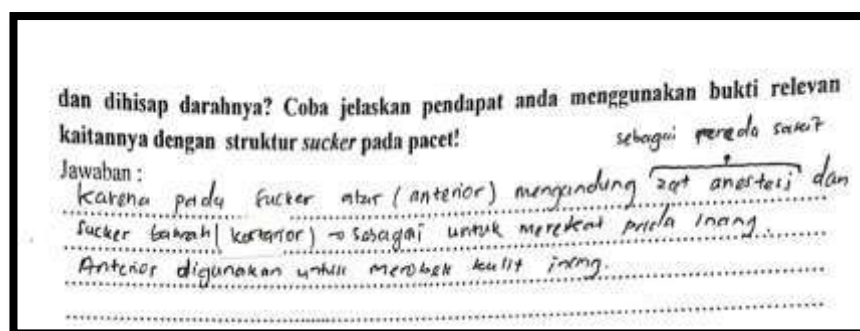 dan dihisap darahnya? Coba jelaskan pendapat anda menggunakan bukti relevan
kaitannya dengan struktur sucker pada pacet!
sebagai pereda sakit
Jawaban :
karena pada sucker atas (anterior) mengandung zat anestesi dan
sucker bawah (korterior) → sebagai untuk merekat pada inang.
Anterior digunakan untuk merobek kulit inang.